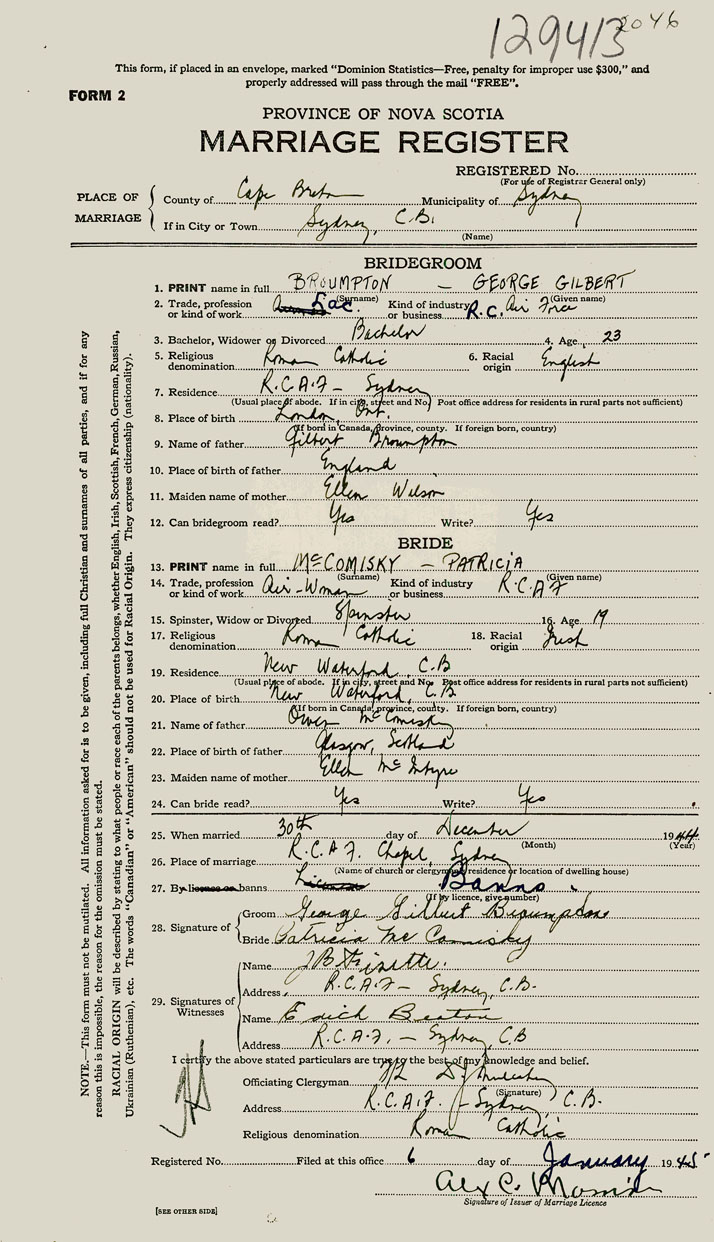 129413 2046
This form, if placed in an envelope, marked "Dominion Statistics—Free, penalty for improper use $300," and
properly addressed will pass through the mail "FREE".
FORM 2
PROVINCE OF NOVA SCOTIA
MARRIAGE REGISTER
REGISTERED No.
(For use of Registrar General only)
PLACE OF MARRIAGE
County of Cape Breton Municipality of Sydney
If in City or Town Sydney, C.B.
(Name)
BRIDEGROOM
1. PRINT name in full BROUMPTON — GEORGE GILBERT
(Surname) (Given name)
2. Trade, profession or kind of work Lac. Kind of industry or business R.C. Air Force
3. Bachelor, Widower or Divorced Bachelor 4. Age 23
5. Religious denomination Roman Catholic 6. Racial origin English
7. Residence R.C.A.F — Sydney
(Usual place of abode. If in city, street and No. Post office address for residents in rural parts not sufficient)
8. Place of birth London, Ont.
(If born in Canada, province, county. If foreign born, country)
9. Name of father Gilbert Broumpton
10. Place of birth of father England
11. Maiden name of mother Ellen Wilson
12. Can bridegroom read? Yes Write? Yes
BRIDE
13. PRINT name in full McCOMISKY — PATRICIA
(Surname) (Given name)
14. Trade, profession or kind of work Air-Woman Kind of industry or business R.C.A.F
15. Spinster, Widow or Divorced Spinster 16. Age 19
17. Religious denomination Roman Catholic 18. Racial origin Irish
19. Residence New Waterford, C.B
(Usual place of abode. If in city, street and No. Post office address for residents in rural parts not sufficient)
20. Place of birth New Waterford, C.B
(If born in Canada, province, county. If foreign born, country)
21. Name of father Owen McComisky
22. Place of birth of father Glasgow, Scotland
23. Maiden name of mother Ellen McIntyre
24. Can bride read? Yes Write? Yes
25. When married 30th day of December 1944
(Month) (Year)
26. Place of marriage R.C.A.F. Chapel, Sydney
(Name of church or clergyman's residence or location of dwelling house)
27. By license or banns License Banns
(If by licence, give number)
28. Signature of
Groom George Gilbert Broumpton
Bride Patricia McComisky
29. Signatures of Witnesses
Name J B
Address R.C.A.F — Sydney, C.B.
Name Beaton
Address R.C.A.F. — Sydney, C.B
I certify the above stated particulars are true to the best of my knowledge and belief.
Officiating Clergyman F/L D.J.
(Signature)
Address R.C.A.F. — Sydney, C.B.
Religious denomination Roman Catholic
Registered No. Filed at this office 6 day of January 1945
Alex C.
Signature of Issuer of Marriage Licence
[SEE OTHER SIDE]
NOTE.—This form must not be mutilated. All information asked for is to be given, including full Christian and surnames of all parties, and if for any
reason this is impossible, the reason for the omission must be stated.
RACIAL ORIGIN will be described by stating to what people or race each of the parents belongs, whether English, Irish, Scottish, French, German, Russian,
Ukrainian (Ruthenian), etc. The words "Canadian" or "American" should not be used for Racial Origin. They express citizenship (nationality).